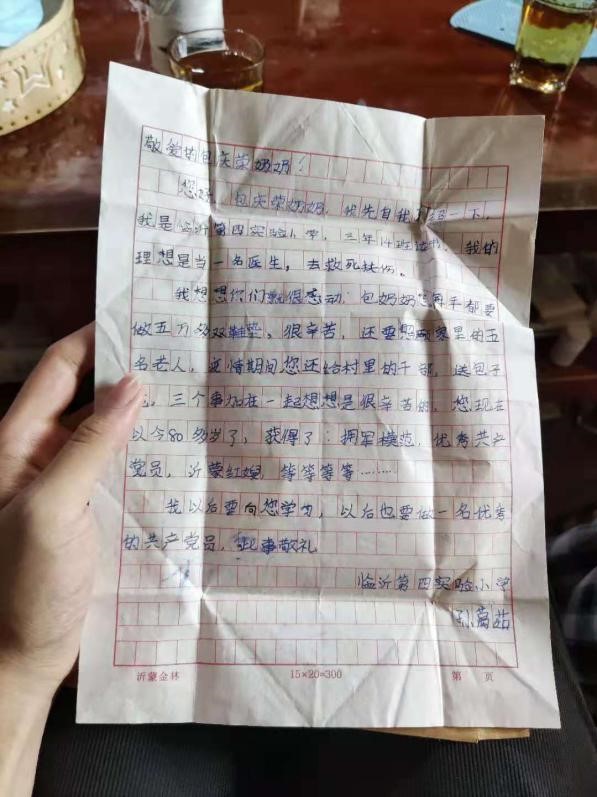 敬爱的包庆荣奶奶：
您好，包庆荣奶奶，我先自我介绍一下，
我是临沂第四实验小学，三年14班读书，我的
理想是当一名医生，去救死扶伤。
我想想你们就很感动，包奶奶每年都要
做五万多双鞋垫，很辛苦，还要照顾家里的五
名老人，疫情期间您还给村里的干部，送包子
三个事加在一起想想是很辛苦的，您现在
以今80多岁了，获得了：拥军模范，优秀共产
党员，沂蒙红嫂，等等等等………
我以后要向您学习，以后也要做一名优秀
的共产党员，此事敬礼
临沂第四实验小学
孙菡茹
沂蒙金林 15×20=300 第 页